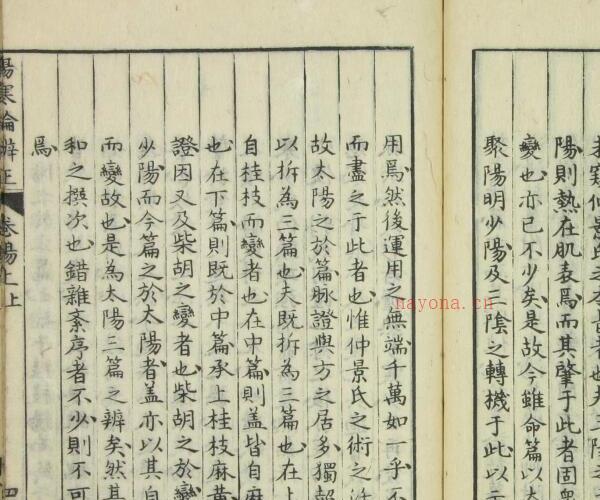 窺仲景氏之
陽則熱在肌表焉而其肇于此者固
變也亦已不少矣是故今雖命篇以太
聚陽明少陽及三陰之轉機于此以示
用焉然後運用之無端千萬如一乎不
而盡之于此者也惟仲景氏之術之
故太陽之於篇脉證與方之居多獨
以拆為三篇也夫既拆為三篇也在上
自桂枝而變者也在中篇則蓋皆自麻
也在下篇則既於中篇承上桂枝麻黄
證因又及柴胡之變者也柴胡之於
少陽而今篇之於太陽者蓋亦以其自
而變故也是為太陽三篇之辨矣然其
和之撰次也錯雜紊亭者不少則不可
焉
傷寒論辨正 卷陽上上
hayona.cn